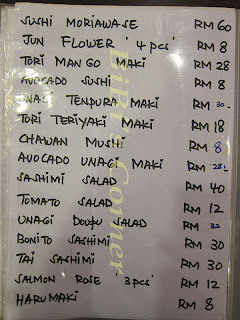 SUSHI MORIAWASE RM 60
JUN FLOWER '4 pcs' RM 8
TORI MANGO MAKI RM 28
AVOCADO SUSHI RM 8
UNAGI TENPURA MAKI RM 30
TORI TERIYAKI MAKI RM 18
CHAWAN MUSHI RM 8
AVOCADO UNAGI MAKI RM 28
SASHIMI SALAD RM 40
TOMATO SALAD RM 12
UNAGI DOUFU SALAD RM 22
BONITO SASHIMI RM 30
TAI SASHIMI RM 30
SALMON ROSE '3 pcs' RM 12
HARUMAKI RM 8
Corner